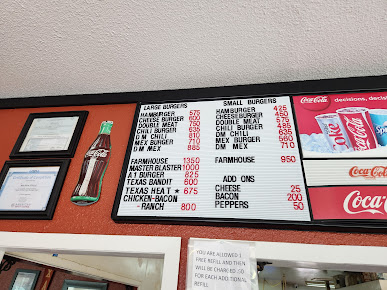 LARGE BURGERS
HAMBURGER 575
CHEESE BURGER 600
DOUBLE MEAT 750
CHILI BURGER 635
DM CHILI 810
MEX BURGER 710
DM MEX 885
FARMHOUSE 1350
MASTER BLASTER 1000
A1 BURGER 825
TEXAS BANDIT 600
TEXAS HEAT ★ 675
CHICKEN-BACON
-RANCH 800
SMALL BURGERS
HAMBURGER 425
CHEESEBURGER 450
DOUBLE MEAT 575
CHILI BURGER 485
DM CHILI 635
MEX BURGER 560
DM MEX 710
FARMHOUSE 950
ADD ONS
CHEESE 25
BACON 200
PEPPERS 50
Coca-Cola
decisions, decis
Diet Coke
Coca-Cola
Coca-Cola
Coca-Cola
YOU ARE ALLOWED 1
FREE REFILL AND THEN
WILL BE CHARGED .50
FOR EACH ADDITIONAL
REFILL